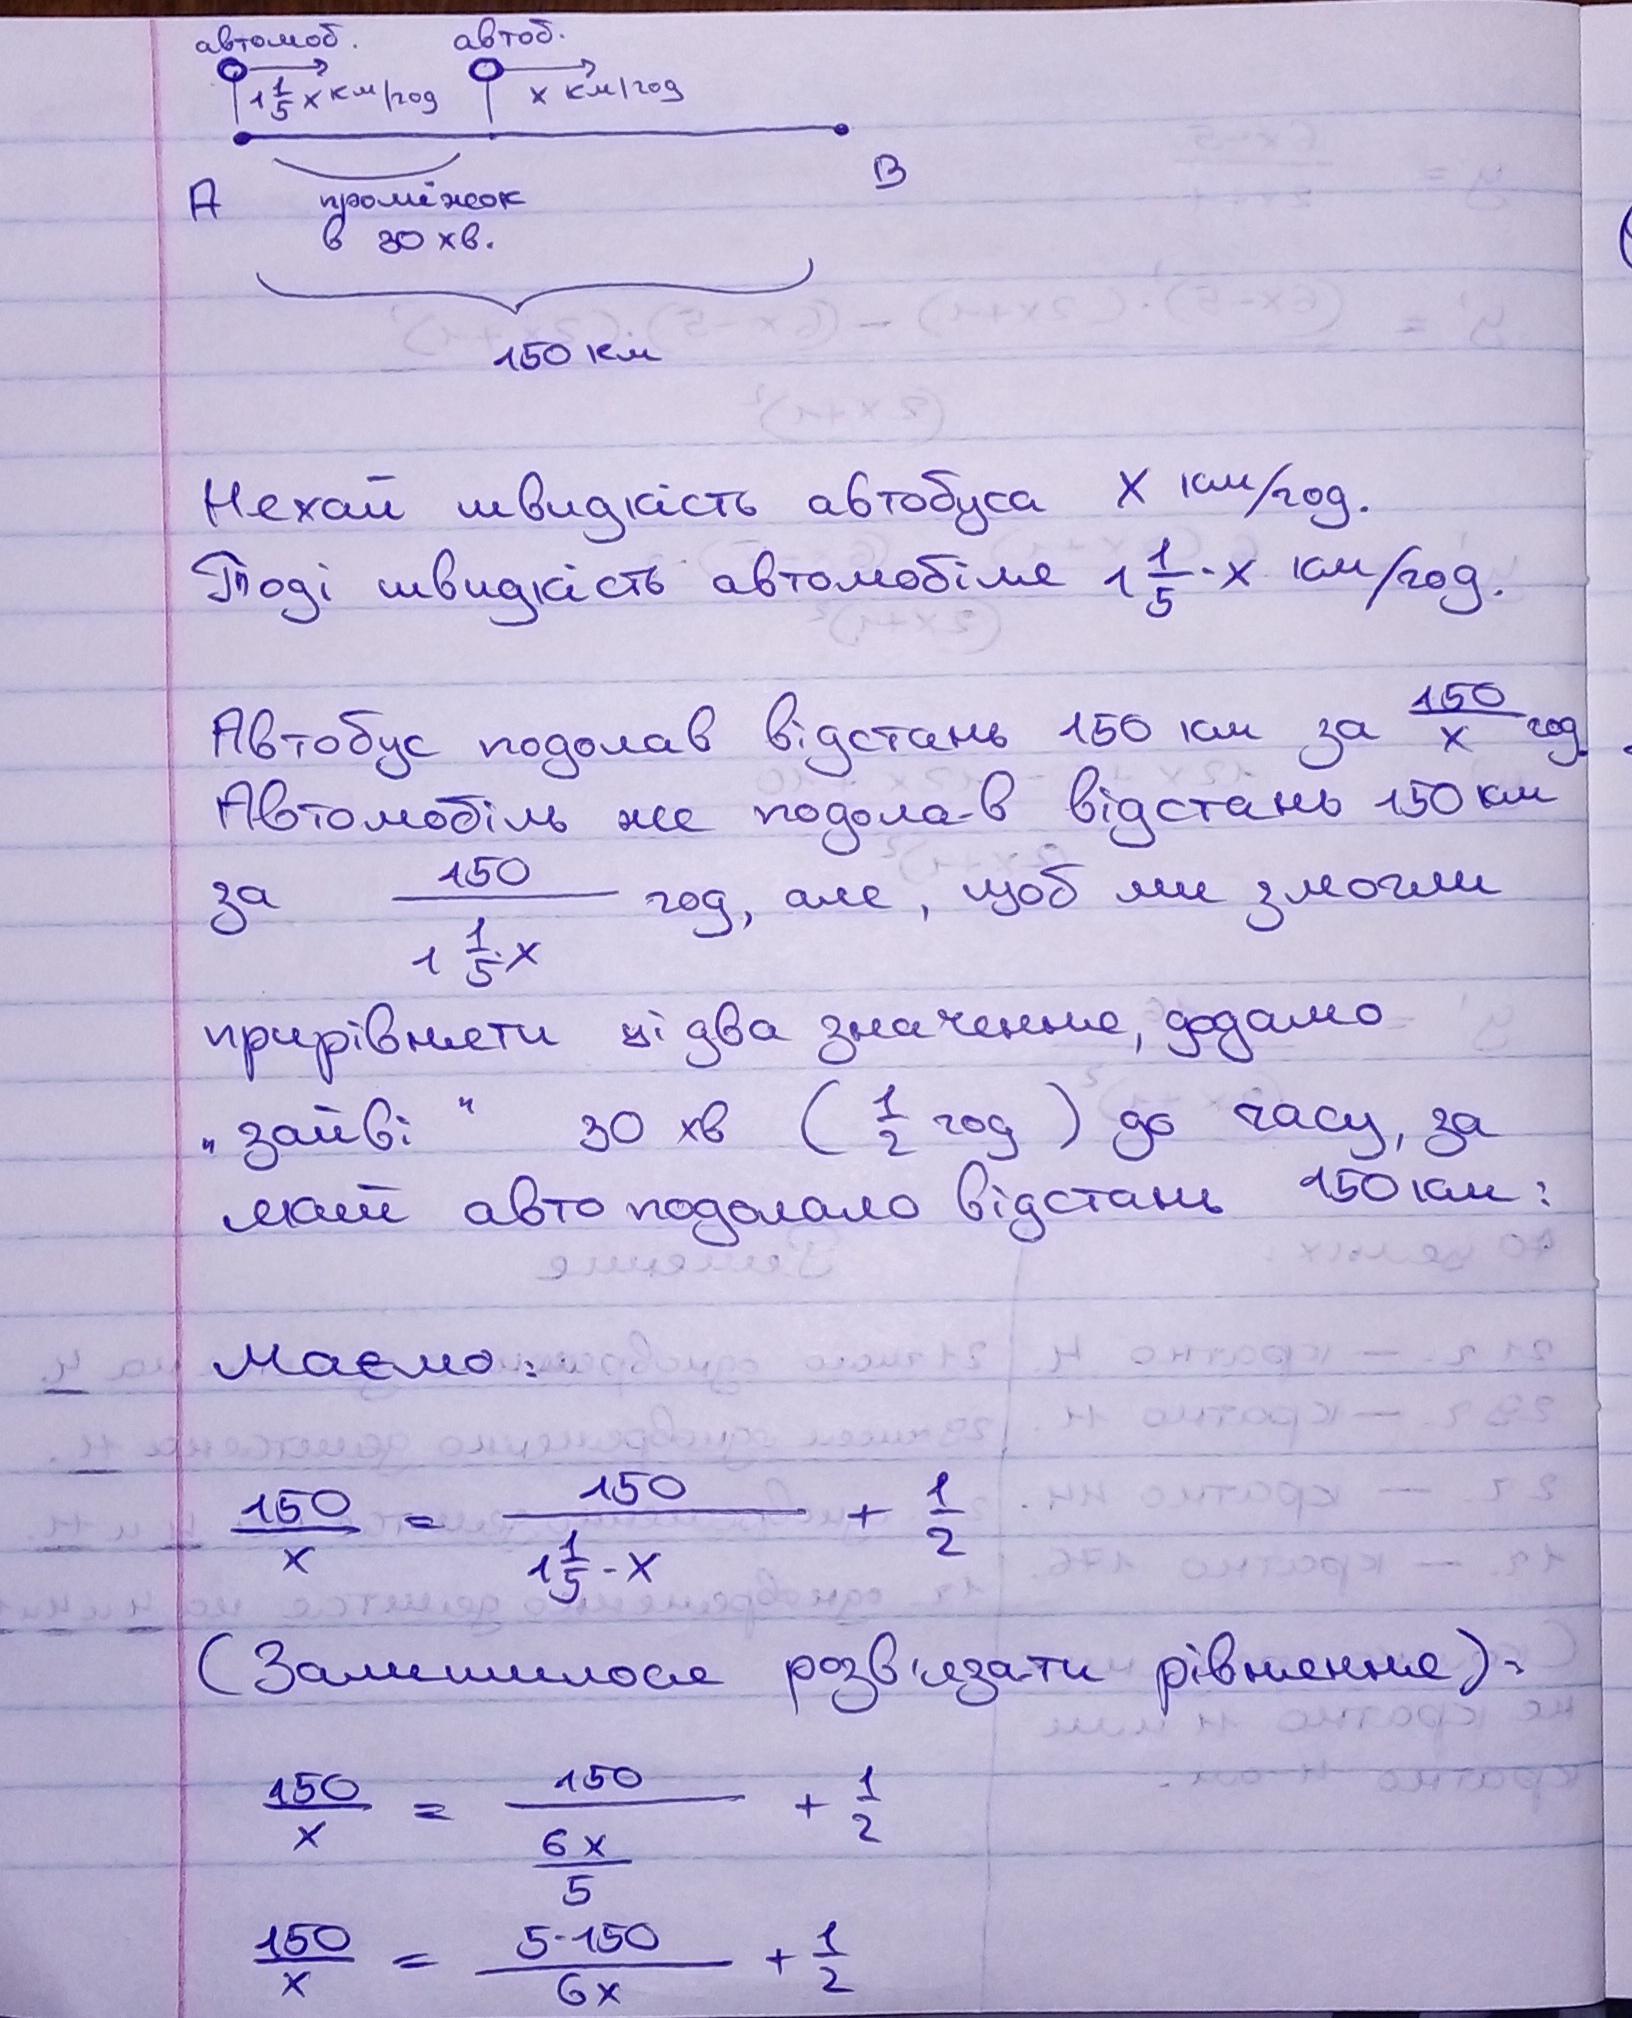 автомоб. автоб.
1 1/5 x км/год x км/год
A B
проміжок
в 30 хв.
150 км
Нехай швидкість автобуса x км/год.
Тоді швидкість автомобіля 1 1/5 · x км/год.
Автобус подолав відстань 150 км за 150/x год
Автомобіль же подолав відстань 150 км
за 150/(1 1/5 · x) год, але, щоб ми змогли
прирівняти ці два значення, додамо
„зайві“ 30 хв (1/2 год) до часу, за
який авто подолало відстань 150 км:
Маємо:
150/x = 150/(1 1/5 · x) + 1/2
(Залишилося розв'язати рівняння):
150/x = 150/(6x/5) + 1/2
150/x = 5·150/6x + 1/2